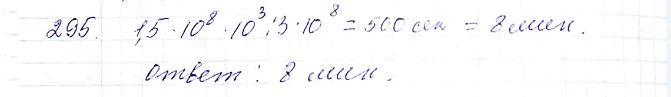 295. 1,5 · 10⁸ · 10³ : 3 · 10⁸ = 500 сек = 8 мин.
Ответ : 8 мин.